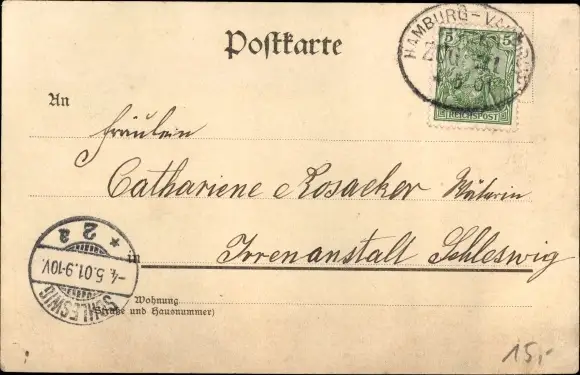 Postkarte
HAMBURG-
5 5
REICHSPOST
An
Fräulein
Cathariene Rosacker Wäterin
in Irrenanstalt Schleswig
* 2 a
-4.5.01.9-10V.
SCHLESWIG
Wohnung
(Straße und Hausnummer)
15,-